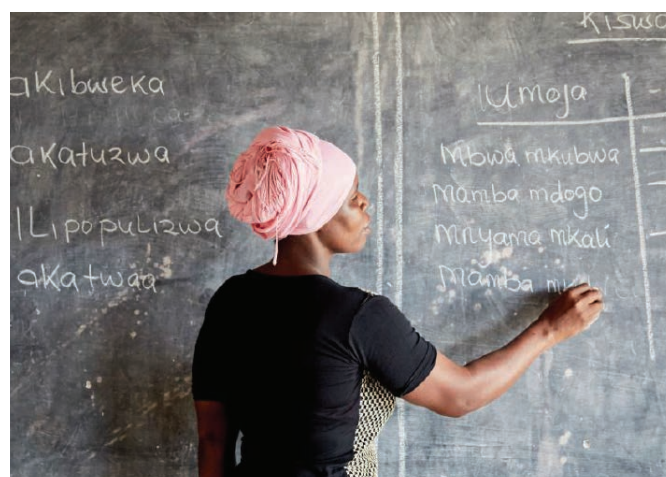 akibweka
akatuzwa
ILipopulizwa
akatwaa
Kiswa
Umoja
Mbwa mkubwa
mamba mdogo
mnyama mkali
mamba